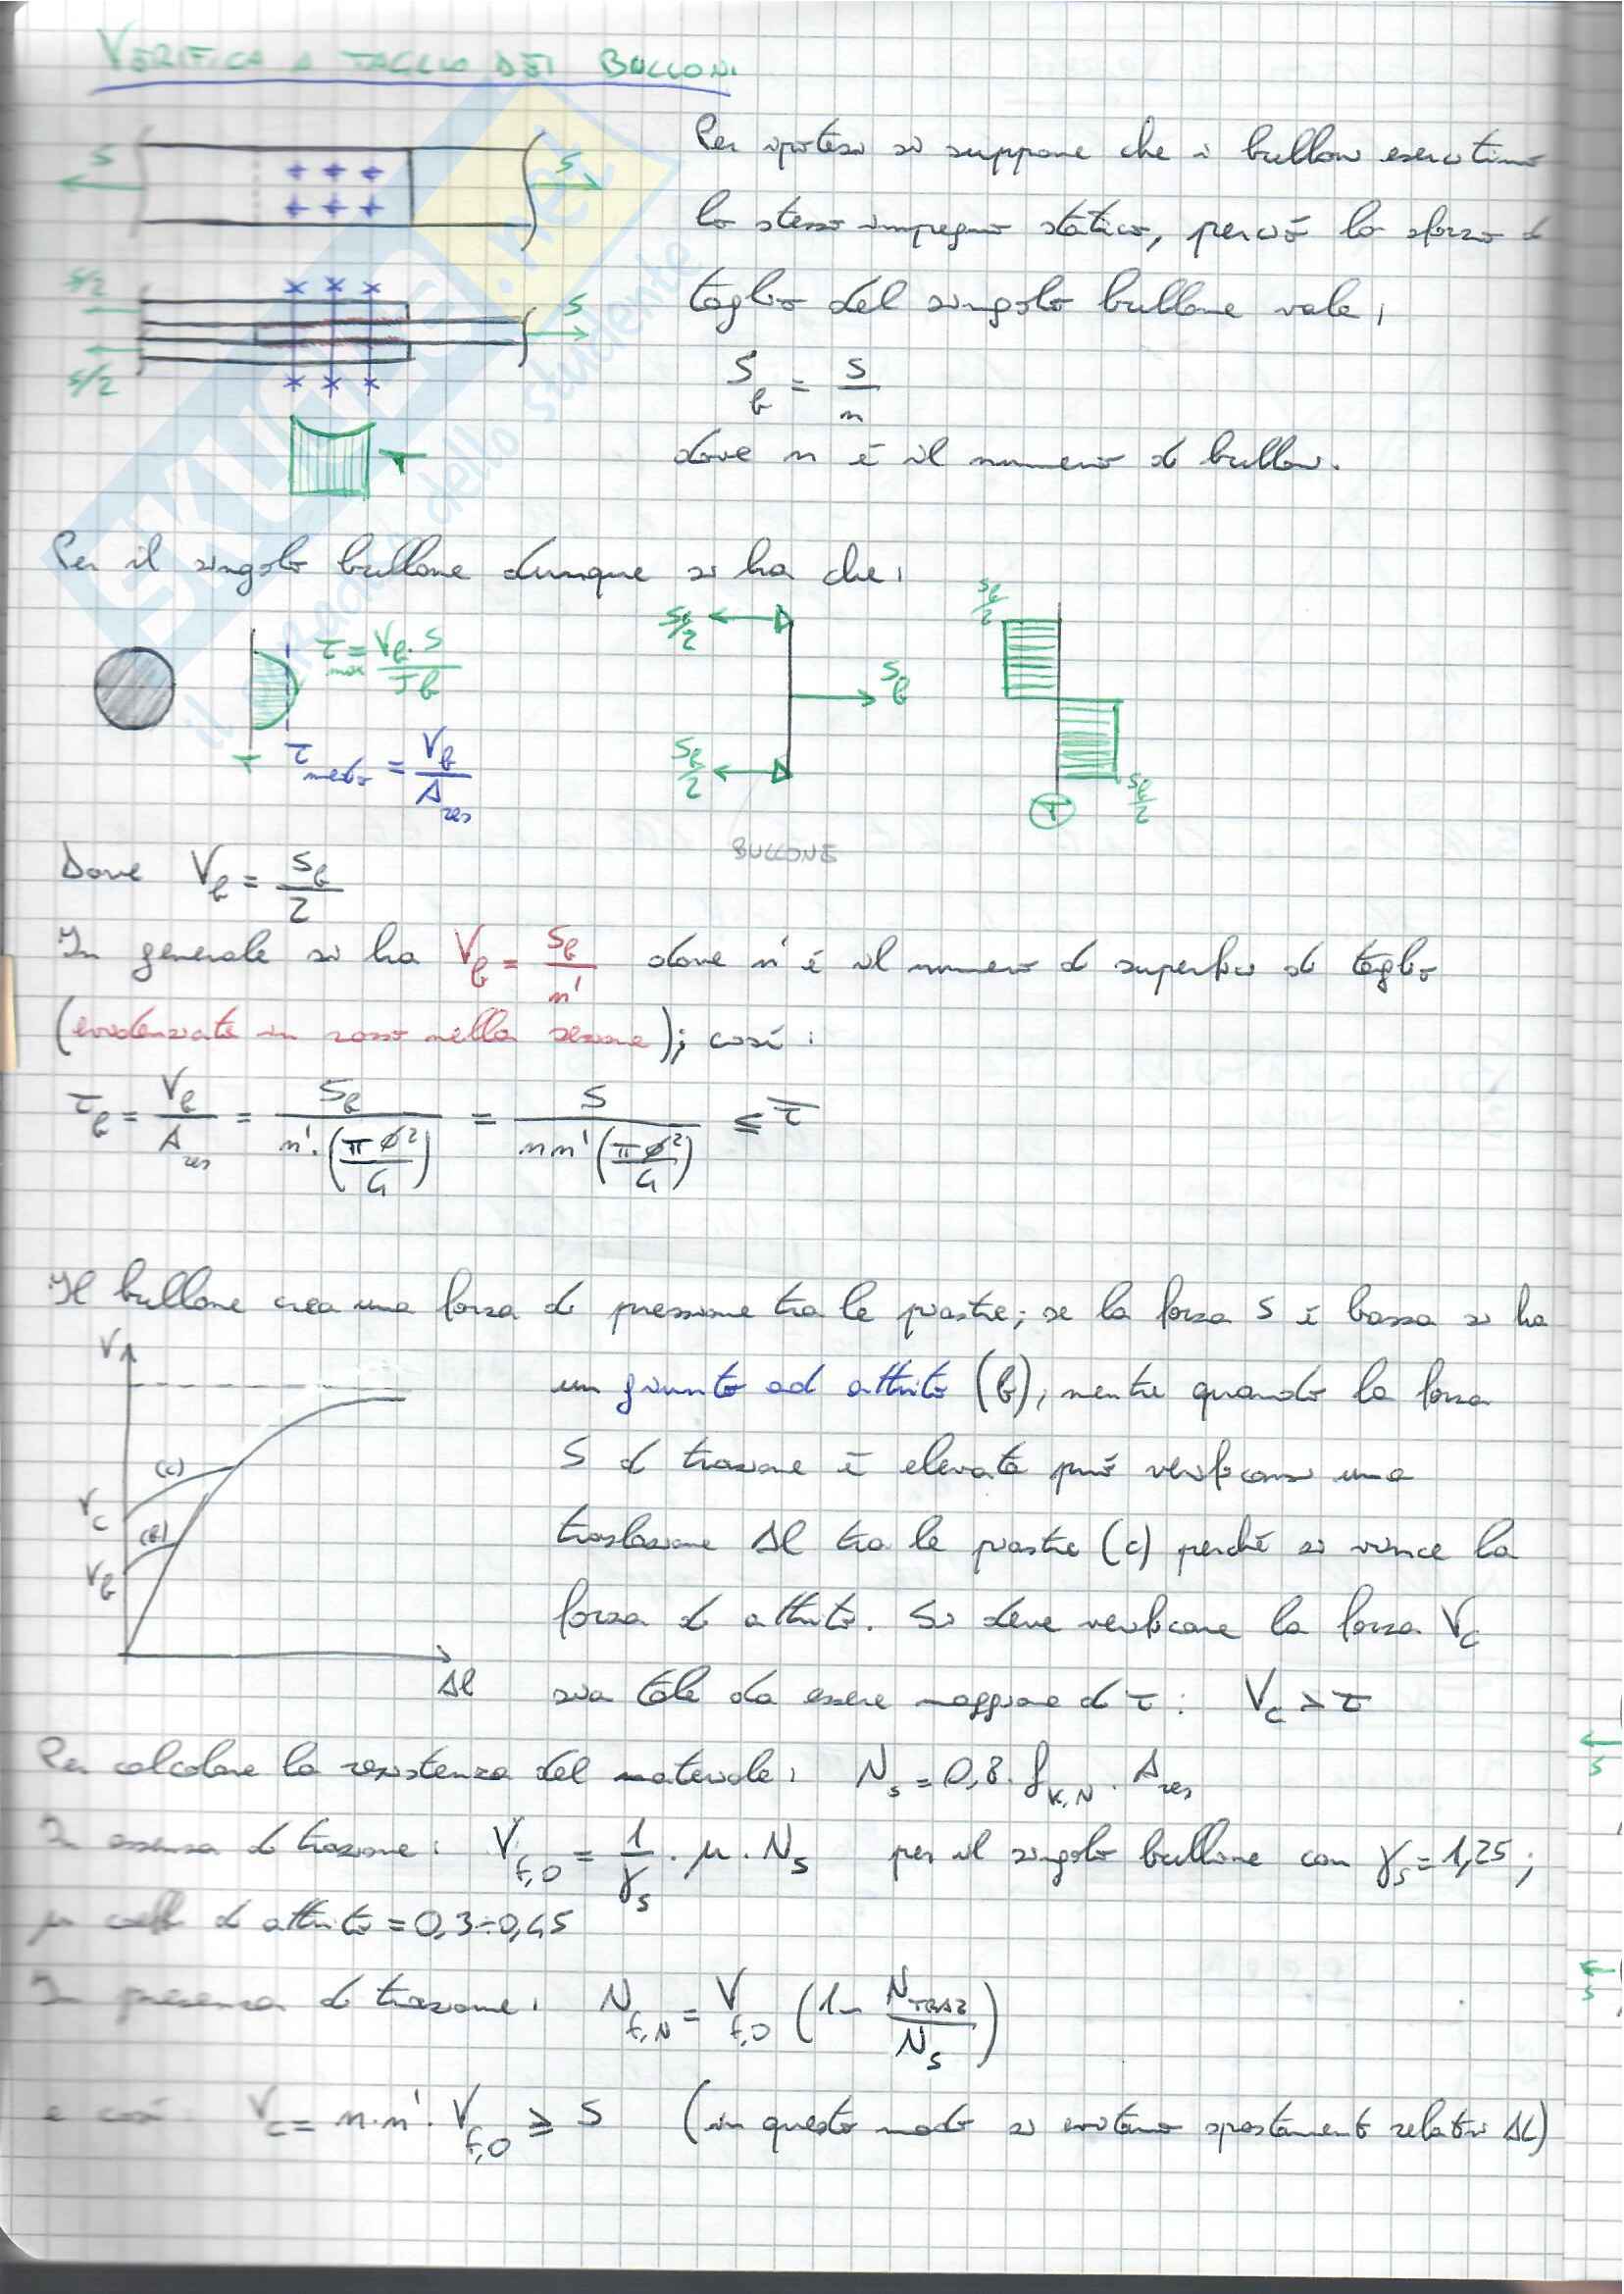 VERIFICA A TAGLIO DEI BULLONI
S
S
Per ipotesi si suppone che i bulloni esercitino
lo stesso impegno statico, perciò lo sforzo di
taglio del singolo bullone vale:
S/2
S
S/2
S_b = S/n
τ
dove n è il numero di bulloni.
Per il singolo bullone dunque si ha che:
τ_max = V_b · S / J b
τ
τ_medio = V_b / A_res
S_b/2
S_b
S_b/2
BULLONE
S_b/2
S_b/2
T
Dove V_b = S_b/2
In generale si ha V_b = S_b/n' dove n' è il numero di superfici di taglio
(evidenziate in rosso nella sezione); così:
τ_b = V_b/A_res = S_b/(n'·(πφ²/4)) = S/(n n'(πφ²/4)) ≤ τ̄
Il bullone crea una forza di pressione tra le piastre; se la forza S è bassa si ha
un giunto ad attrito (b), mentre quando la forza
S di trazione è elevata può verificarsi una
traslazione Δl tra le piastre (c) perché si vince la
forza di attrito. Si deve verificare la forza V_c
sia tale da essere maggiore di τ: V_c > τ
V
(c)
V_c
(b)
V_b
Δl
Per calcolare la resistenza del materiale: N_s = 0,8 · f_K,N · A_res
In assenza di trazione: V_f,0 = 1/γ_s · μ · N_s per il singolo bullone con γ_s = 1,25;
μ coeff. di attrito = 0,3÷0,45
In presenza di trazione: N_f,N = V_f,0 (1 - N_TRAZ/N_s)
e così V_c = n·n'·V_f,0 ≥ S (in questo modo si evitano spostamenti relativi Δl)
S
S
SKUOLA.net
il paradiso dello studente